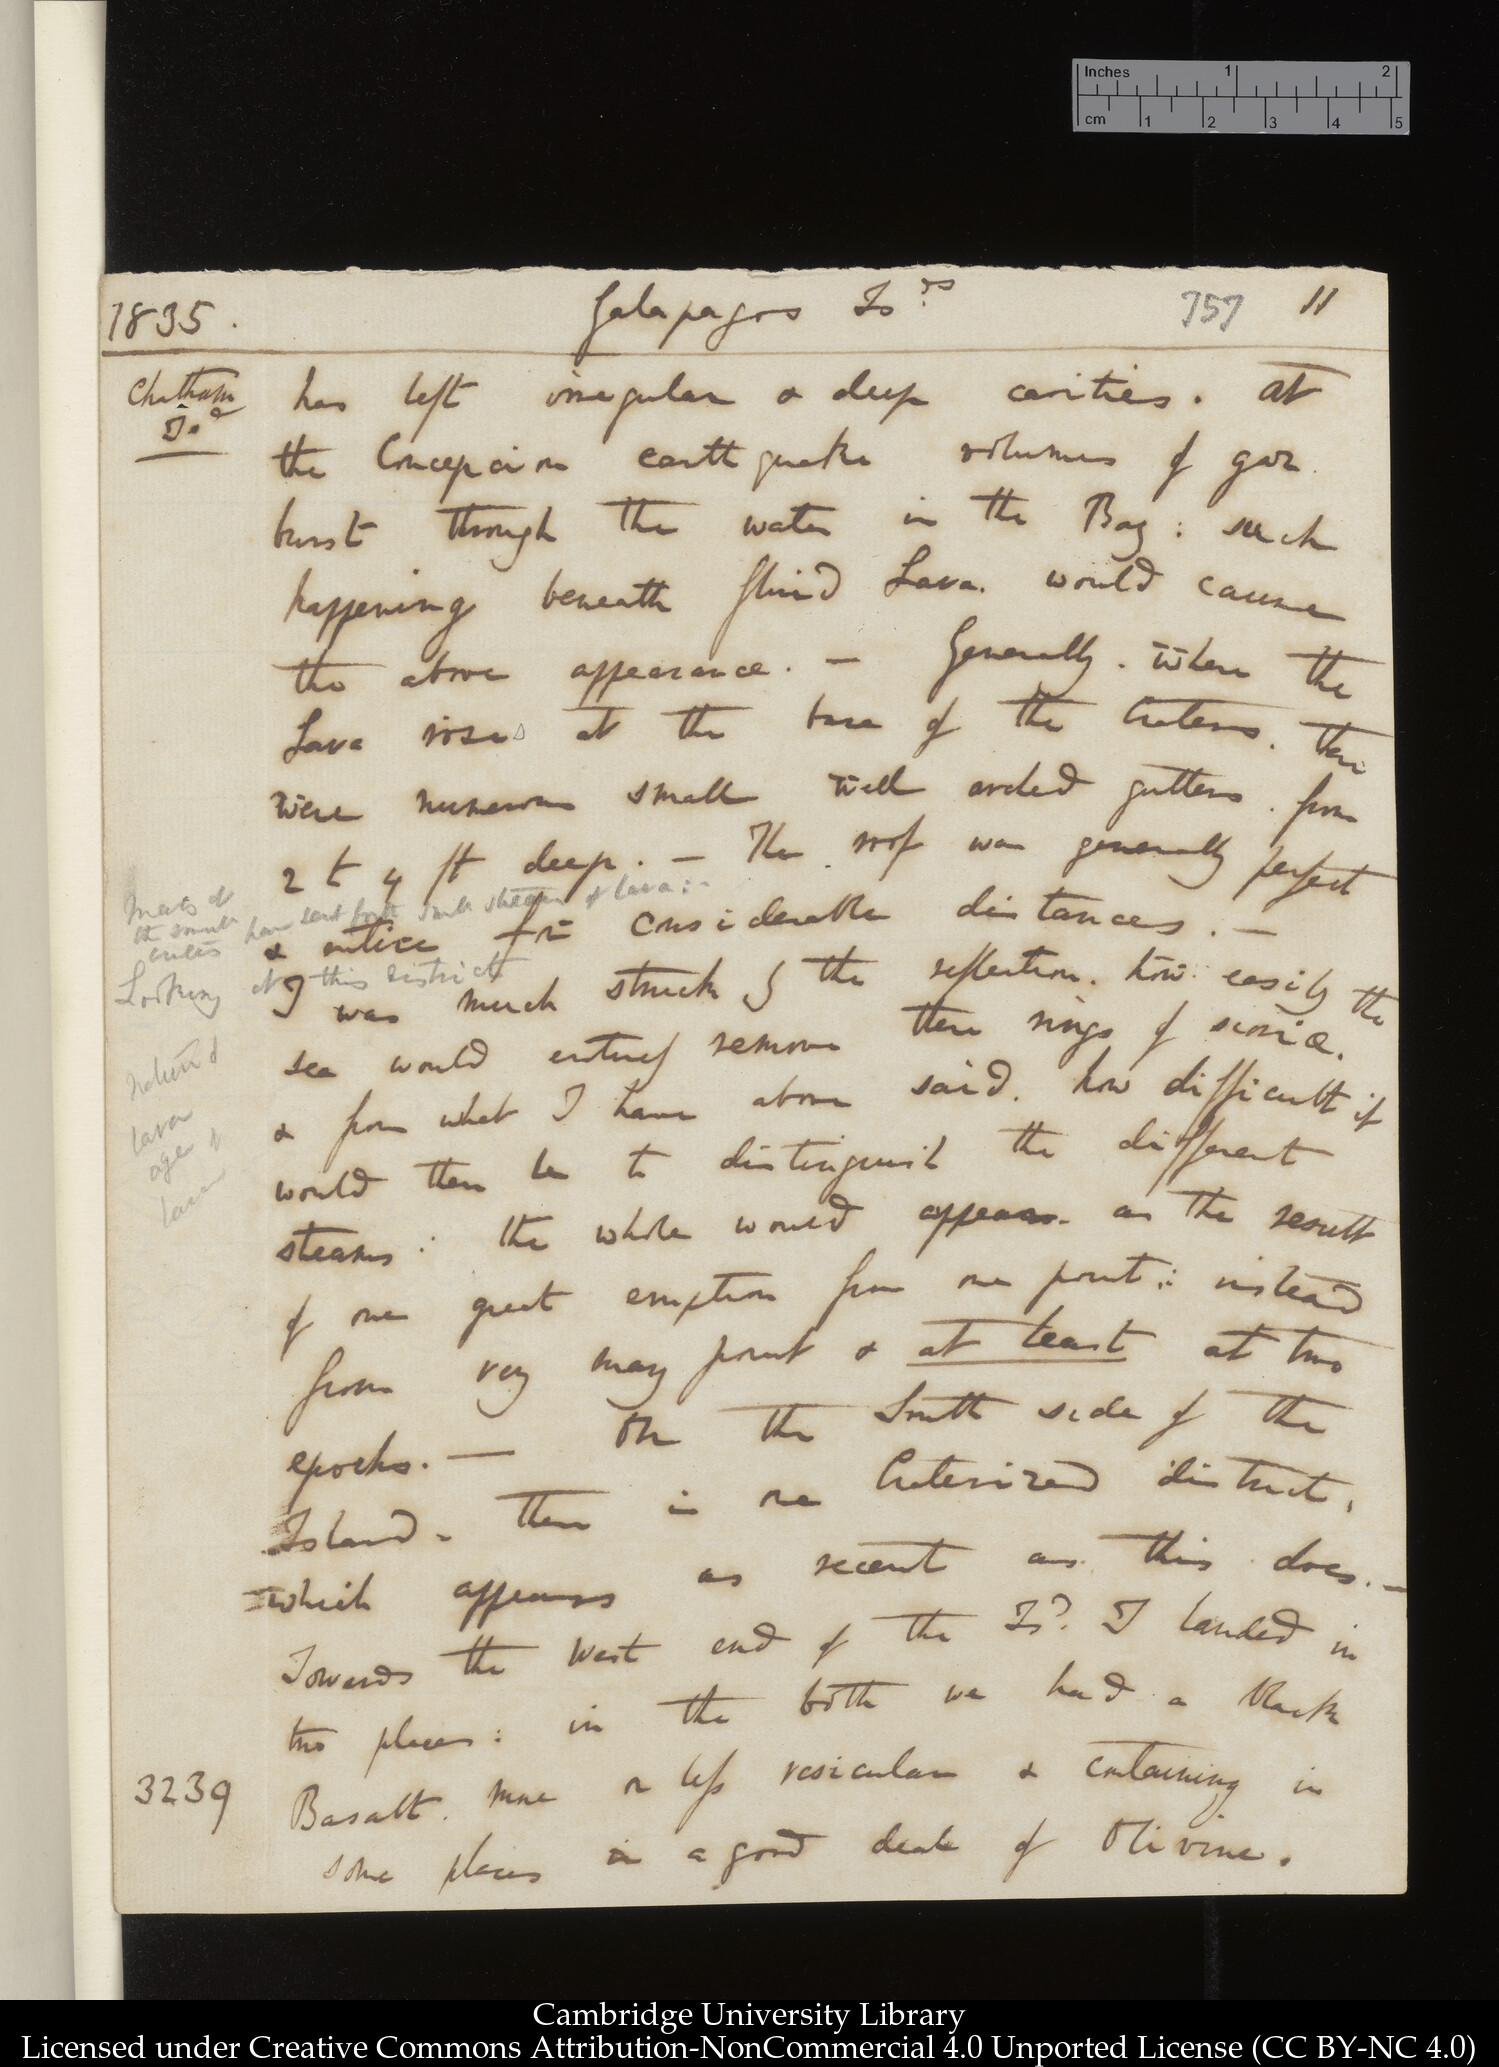 1835.
Galapagos Is.ds
757
11
Chatham
Isd
has left irregular & deep cavities. At
the Concepcion earthquake volumes of gaz
burst through the water in the Bay: such
happening beneath fluid Lava. would cause
the above appearance. — Generally. where the
Lava rose at the base of the Craters. there
were numerous small well arched gutters. from
2 to 4 ft deep. — The roof was generally perfect
& entire for considerable distances. —
Most of the small craters have sent forth small streams of lava: -
Looking at this district
I was much struck by the reflection. how easily the
sea would entirely remove these rings of scoriæ.
& from what I have above said. how difficult it
would then be to distinguish the different
steams: the whole would appear as the result
of one great eruption from one point: instead
from very many point & at least at two
epochs. — On the South side of the
Island - there is one Craterized district,
which appears as recent as this does. —
Towards the West end of the Isd. I landed in
two places: in the both we had a black
Basalt. more or less vesicular & containing in
some places in a good deal of Olivine.
lava
age of
lava
3239
Inches 1 2
cm 1 2 3 4 5
Cambridge University Library
Licensed under Creative Commons Attribution-NonCommercial 4.0 Unported License (CC BY-NC 4.0)